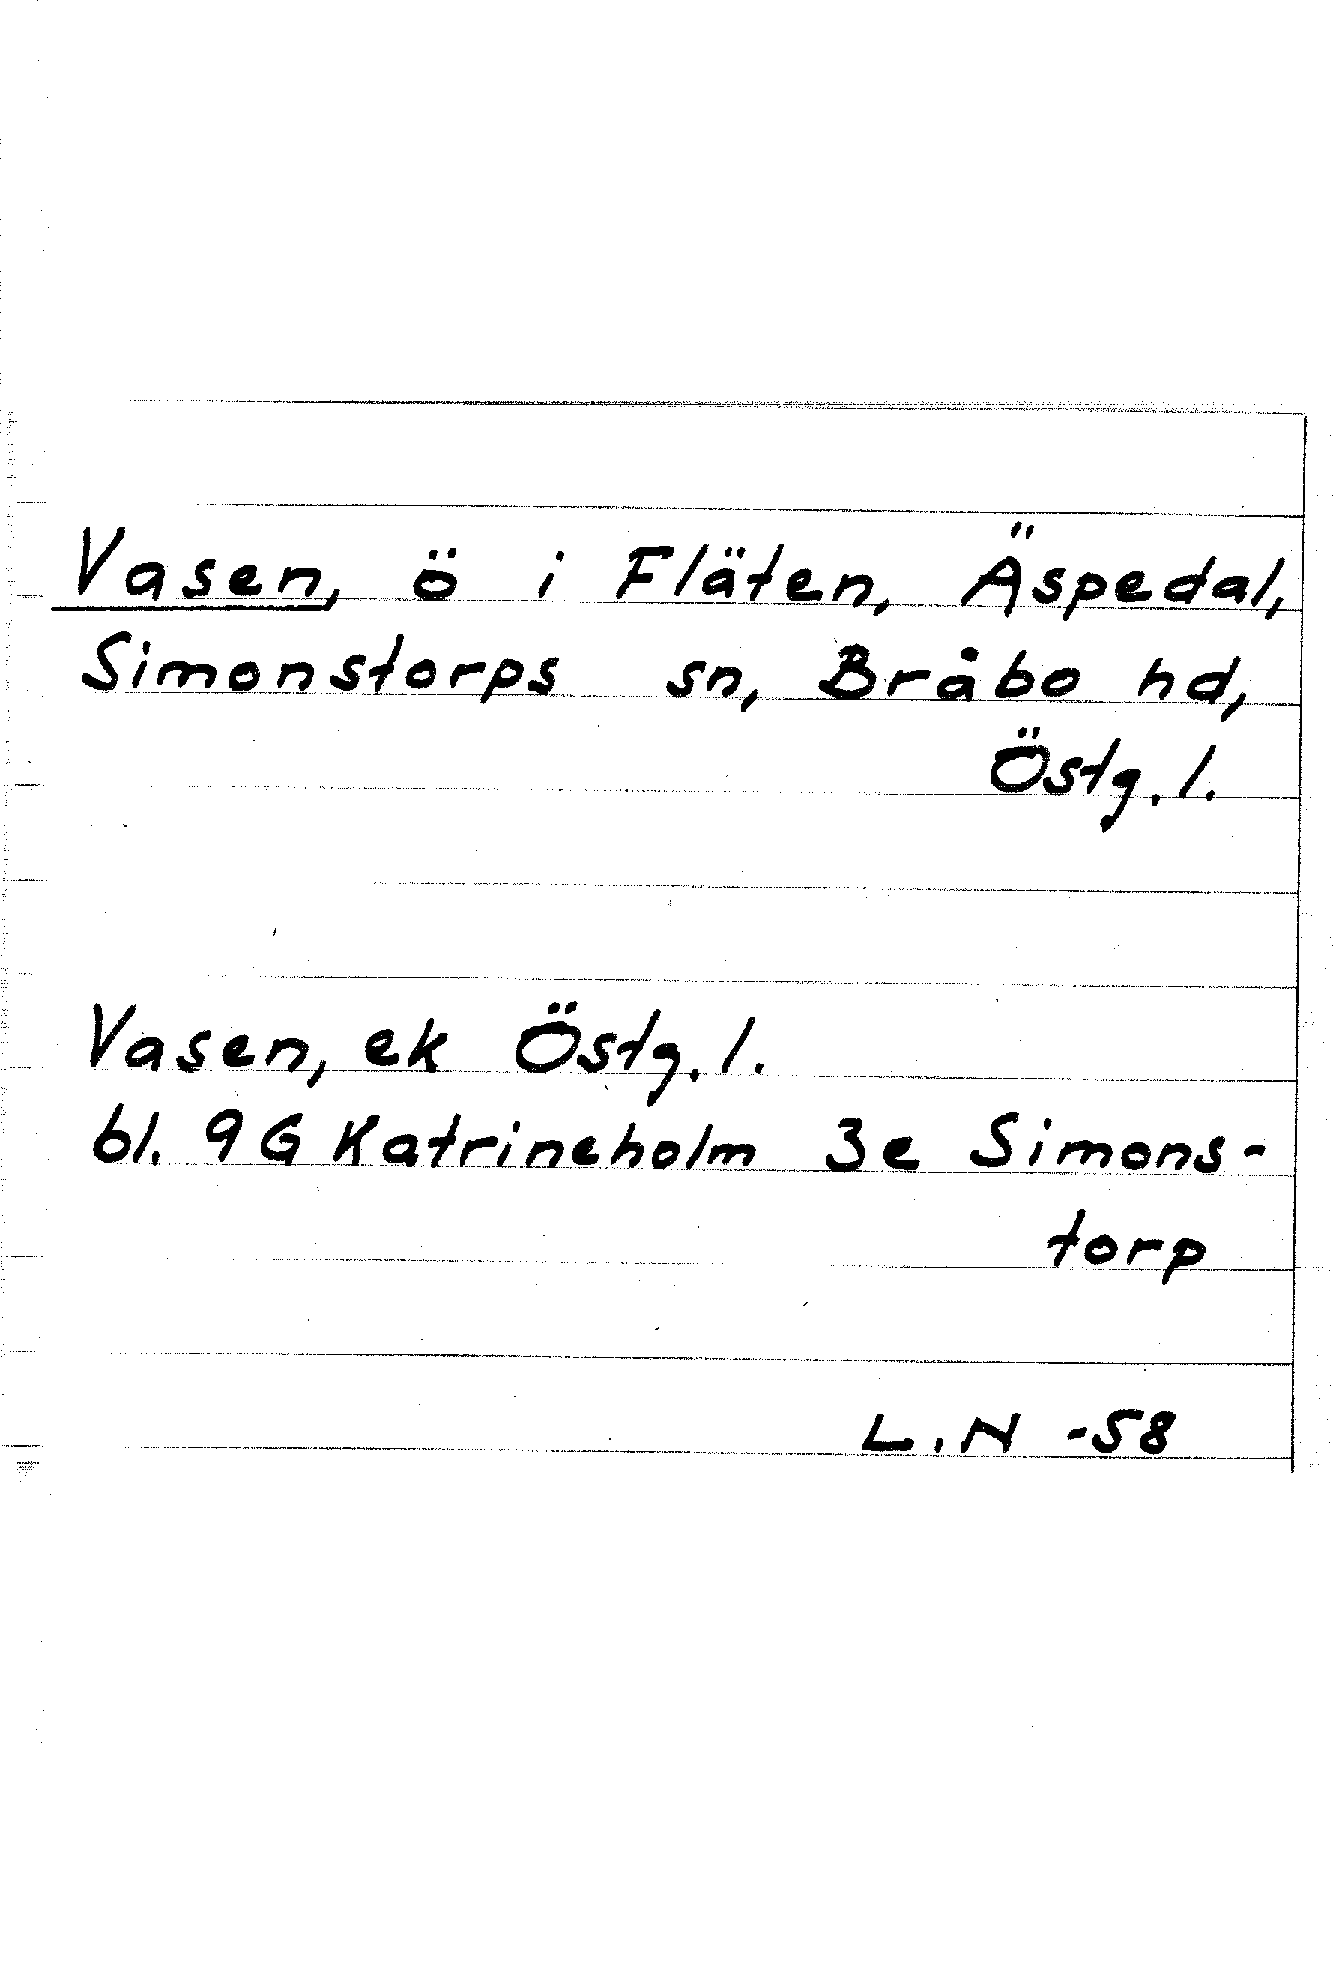 Vasen, ö i Fläten, Äspedal,
Simonstorps sn, Bråbo hd,
Östg. l.
Vasen, ek Östg. l.
bl. 9G Katrineholm 3e Simons-
torp
L.N -58